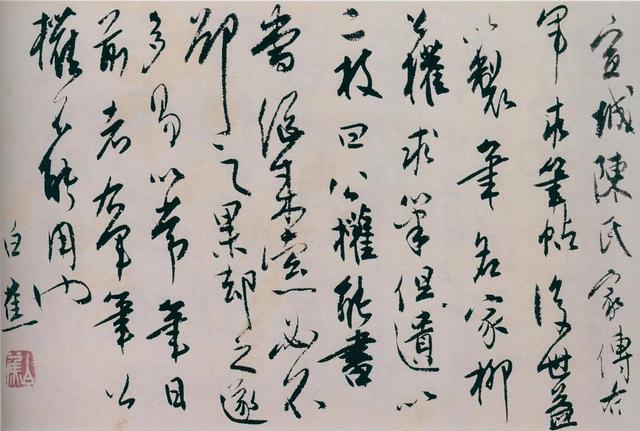 宣城陳氏家傳右
軍求筆帖後世益
以製筆名家柳
公權求筆但遺以
二枝曰公權能書
當繼来索必不
卻之果却之遂
多易以常筆曰
前者右軍筆公
權不能用也
白蕉